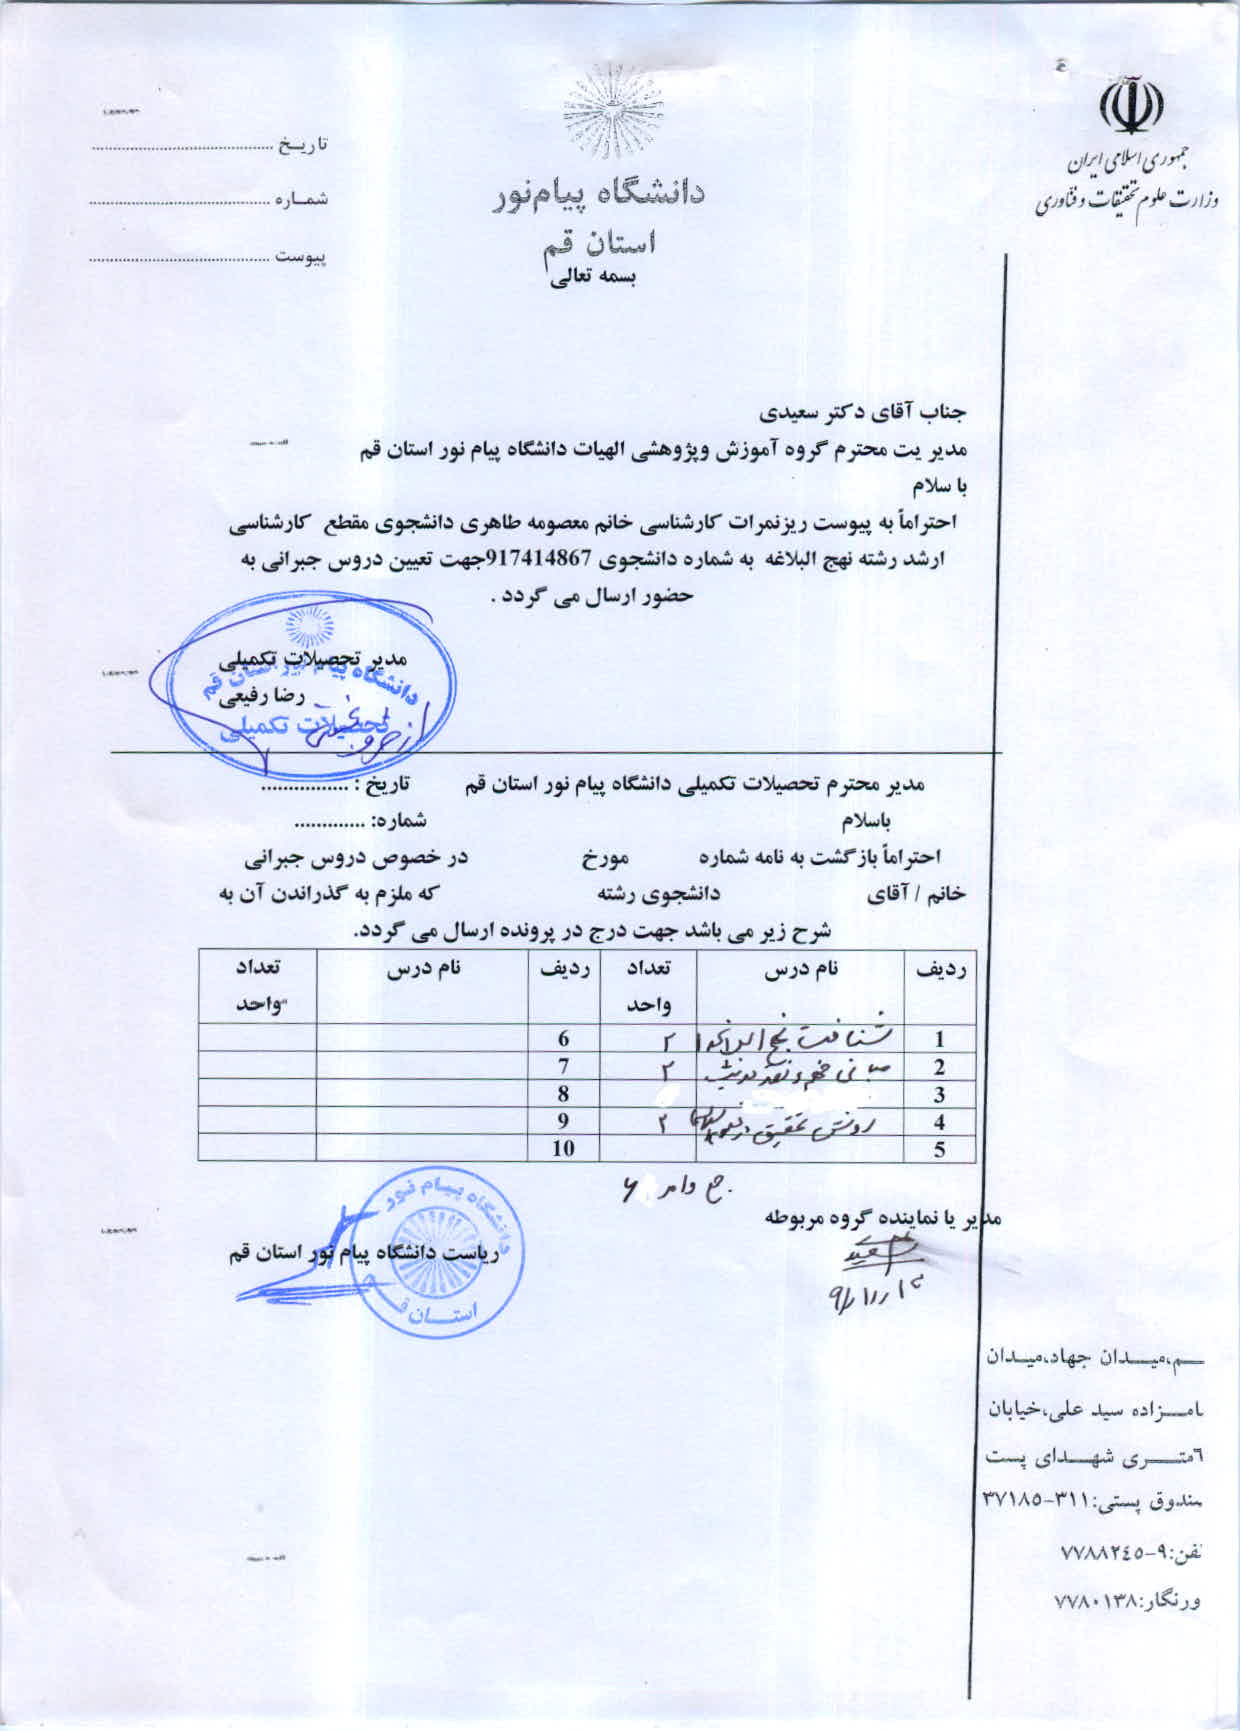 جمهوری اسلامی ایران
وزارت علوم تحقیقات و فناوری
دانشگاه پیام‌نور
استان قم
بسمه تعالی
تاریخ ........................................
شماره ........................................
پیوست ........................................
جناب آقای دکتر سعیدی
مدیر یت محترم گروه آموزش وپژوهشی الهیات دانشگاه پیام نور استان قم
با سلام
احتراماً به پیوست ریزنمرات کارشناسی خانم معصومه طاهری دانشجوی مقطع کارشناسی
ارشد رشته نهج البلاغه به شماره دانشجوی 917414867جهت تعیین دروس جبرانی به
حضور ارسال می گردد .
مدیر تحصیلات تکمیلی
رضا رفیعی
دانشگاه پیام نور استان قم
تحصیلات تکمیلی
مدیر محترم تحصیلات تکمیلی دانشگاه پیام نور استان قم تاریخ : ................
باسلام شماره: .............
احتراماً بازگشت به نامه شماره مورخ در خصوص دروس جبرانی
خانم / آقای دانشجوی رشته که ملزم به گذراندن آن به
شرح زیر می باشد جهت درج در پرونده ارسال می گردد.
ردیف نام درس تعداد واحد ردیف نام درس تعداد واحد
1 شناخت نهج البلاغه ۲ 6
2 مبانی فهم و نقد حدیث ۲ 7
3 8
4 روش تحقیق در ۲ 9
5 10
۶
مدیر یا نماینده گروه مربوطه
ریاست دانشگاه پیام نور استان قم
دانشگاه پیام نور
استان قم
ـم،میدان جهاد،میدان
امـزاده سید علی،خیابان
٦متـری شهـدای پست
ـندوق پستی:۳۱۱-۳۷۱۸۵
ـفن:۹-۷۷۸۸۲٤۵
ورنگار:۷۷۸۰۱۳۸